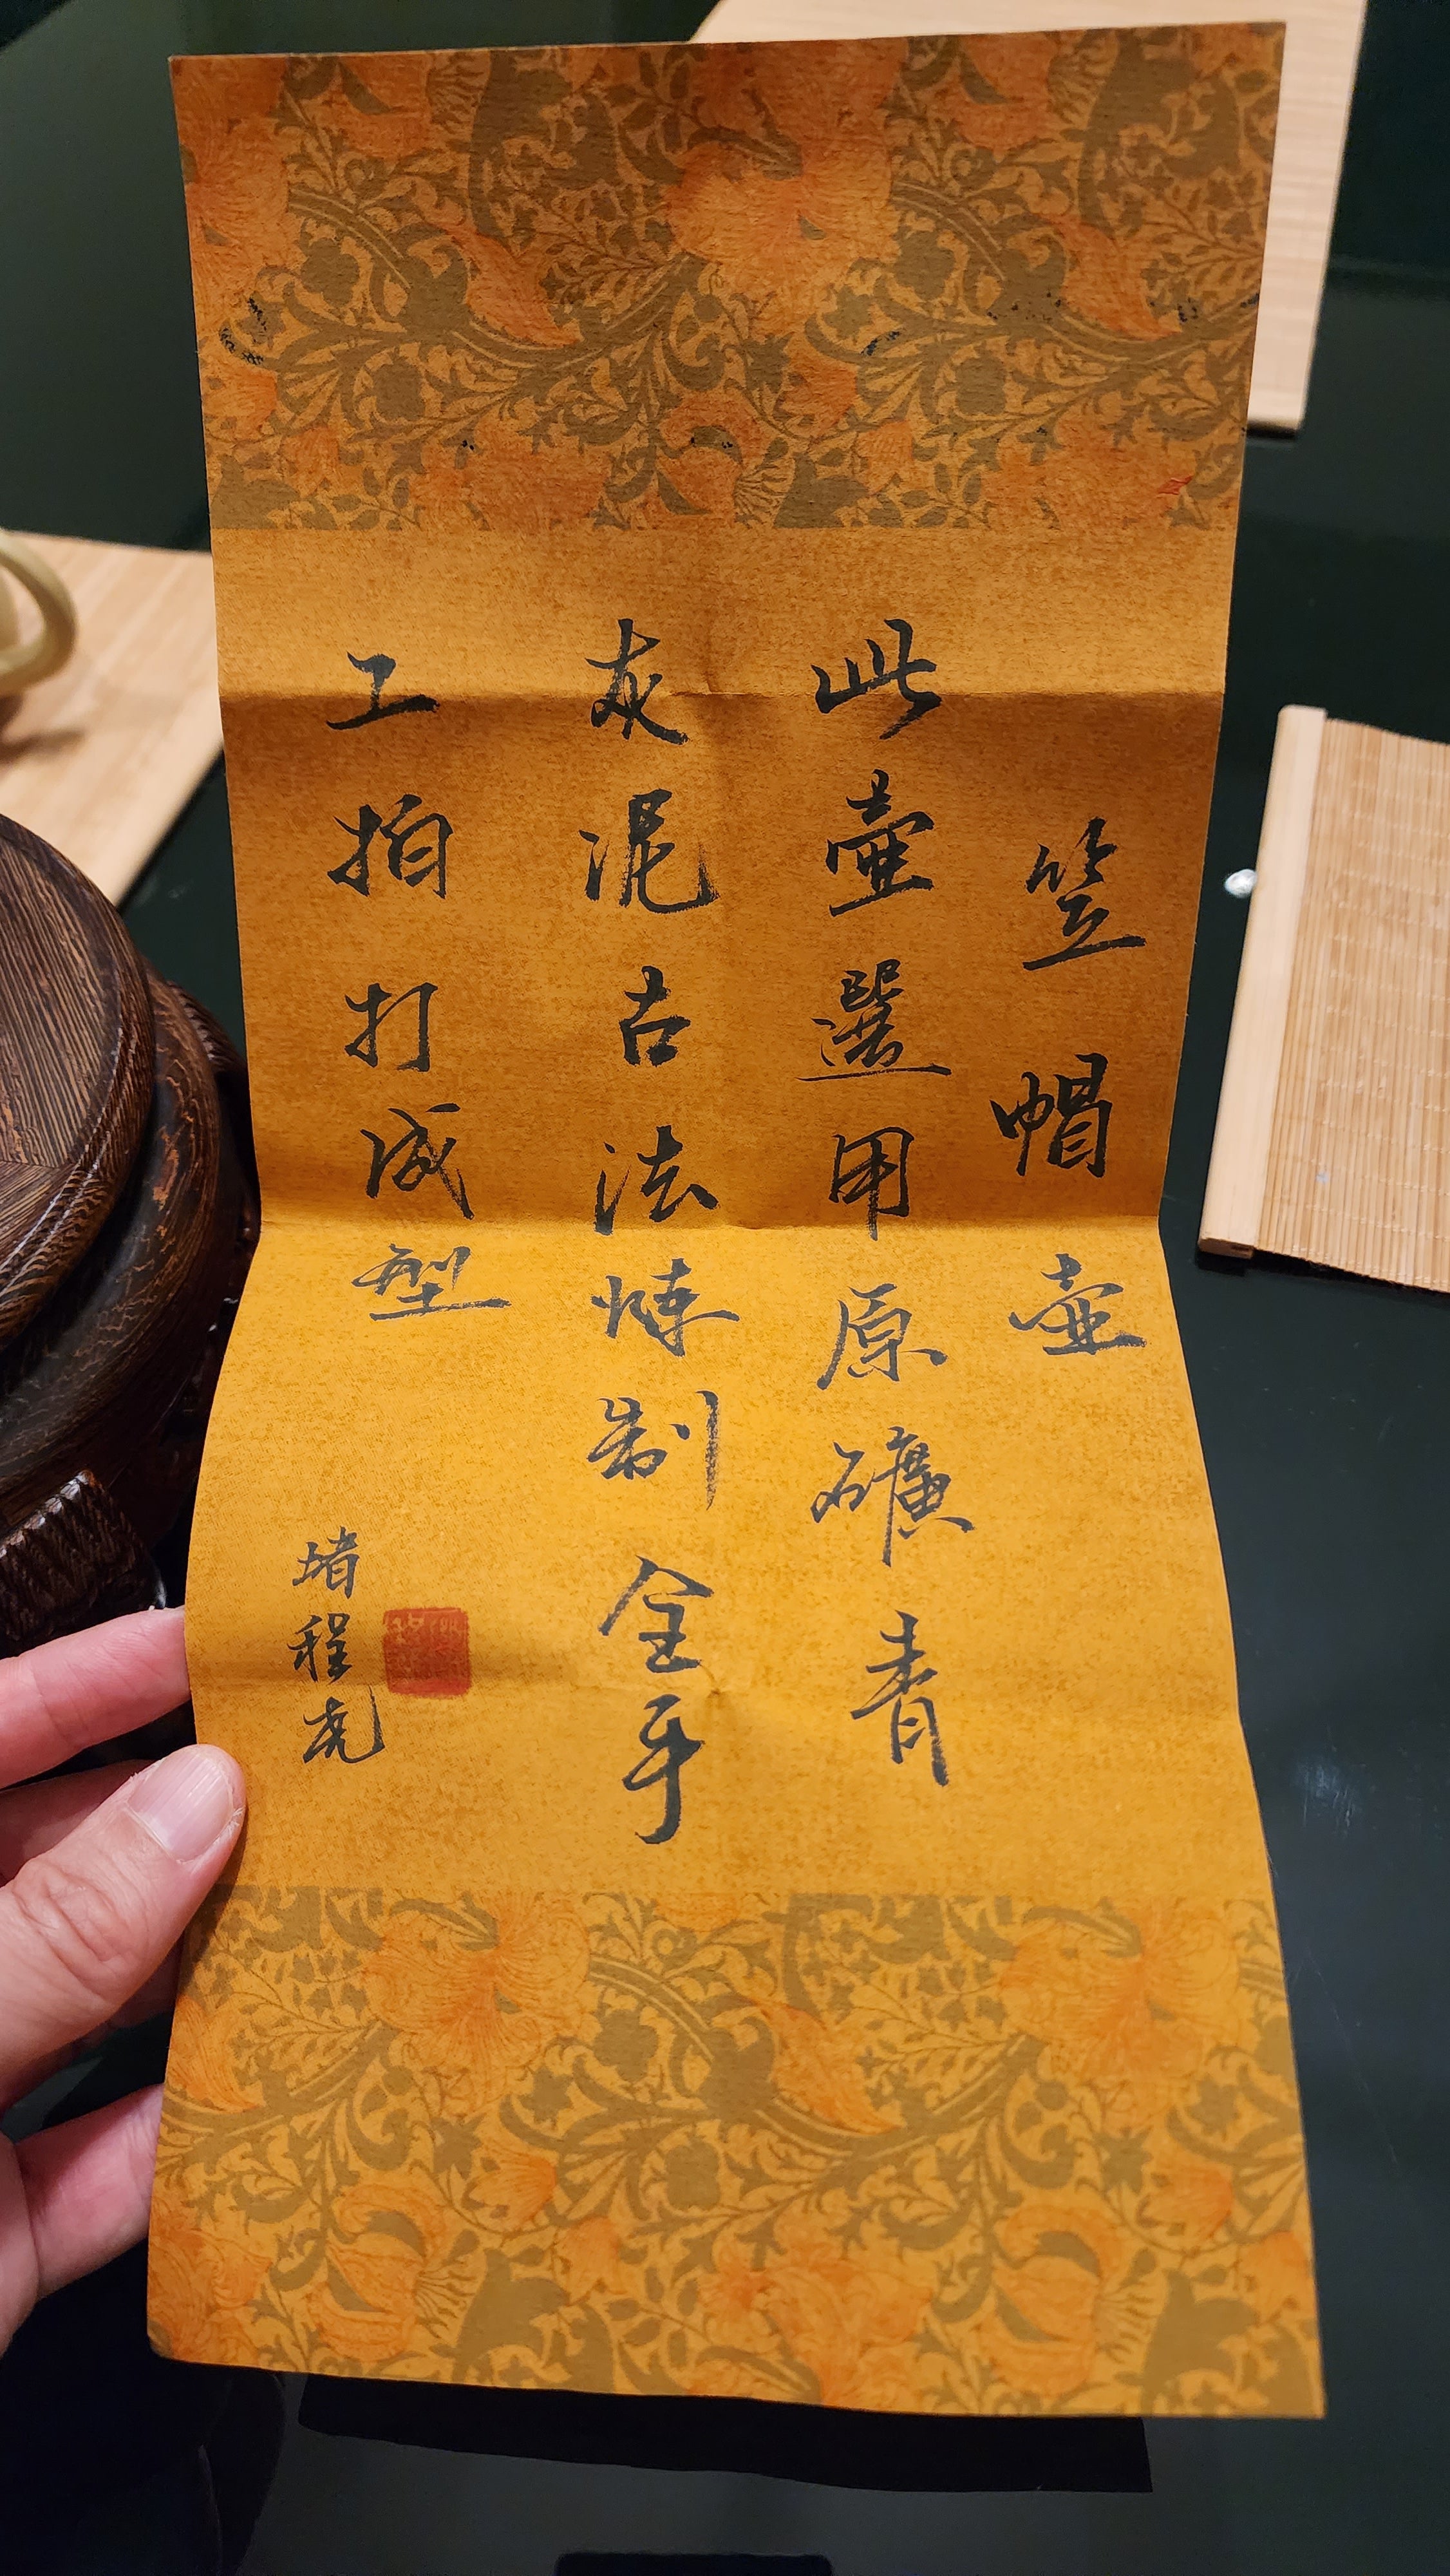 笠帽壺
此壺選用原礦青
灰泥古法煉制全手
工拍打成型
堵程尭